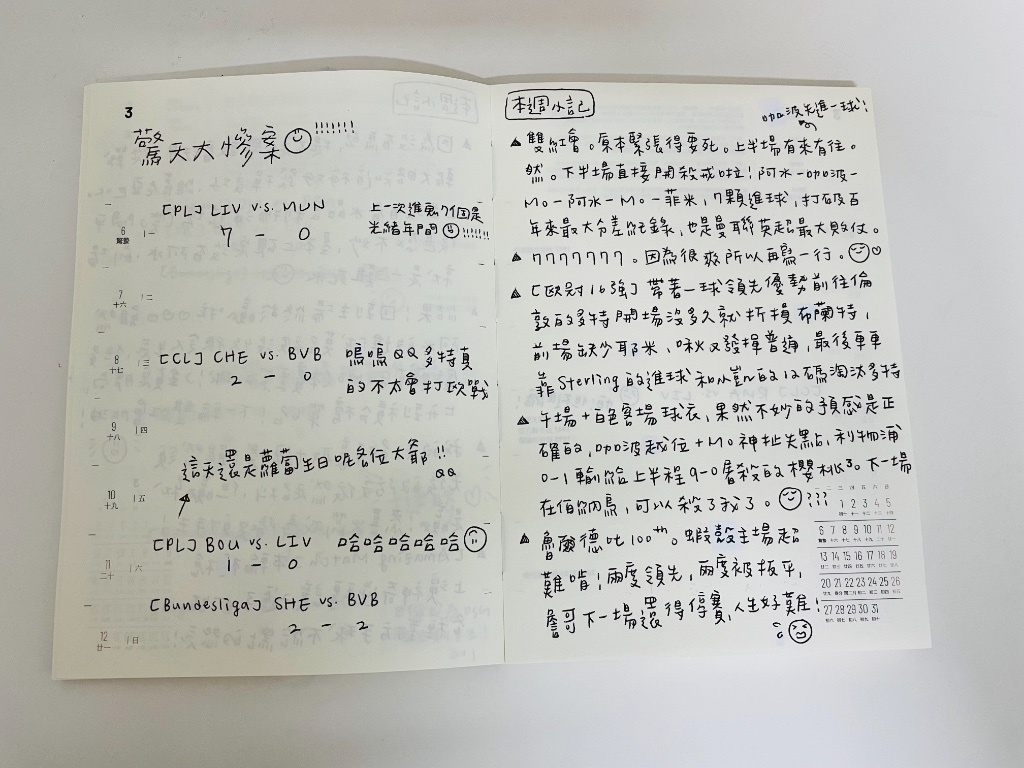 3
驚天大慘案 !!!!!!!
[PL] LIV v.s. MUN
7 - 0
上一次進爲7個是
光緒年間 !!!!!!
6 驚蟄 一
7 十六 二
8 十七 三
[CL] CHE vs. BVB
2 - 0
嗚嗚QQ 多特真
的不太會打砍戰
9 十八 四
這天還是羅當生日呢各位大爺!!
QQ
10 十九 五
[PL] BOU vs. LIV 哈哈哈哈哈
1 - 0
11 二十 六
[Bundesliga] SHE vs. BVB
2 - 2
12 廿一 日
本週小記
咖波先進一球!
▲ 雙紅會。原本緊張得要死。上半場有來有往。
然。下半場直接開殺戒啦!阿水-咖波-
Mo-阿水-Mo-菲米,7顆進球,打破百
年來最大分差紀錄,也是曼聯英超最大敗仗。
▲ 7777777。因為很爽所以再寫一行。
▲ [歐冠16強] 帶著一球領先優勢前往倫
敦的多特開場沒多久就折損布蘭特,
前場缺少耶米,啾又發揮普通,最後車車
靠Sterling的進球和凱的12碼淘汰多特
▲ 午場+白色客場球衣,果然不妙的預感是正
確的,咖波越位+Mo神扯失點,利物浦
0-1輸給上半程9-0屠殺的櫻桃。下一場
在伯納烏,可以殺了我了。 ???
▲ 魯爾德比100th。蝦殼主場超
難啃!兩度領先,兩度被扳平,
詹哥下一場還得停賽,人生好難!
一 二 三 四 五 六 日
1 2 3 4 5
6 7 8 9 10 11 12
13 14 15 16 17 18 19
20 21 22 23 24 25 26
27 28 29 30 31